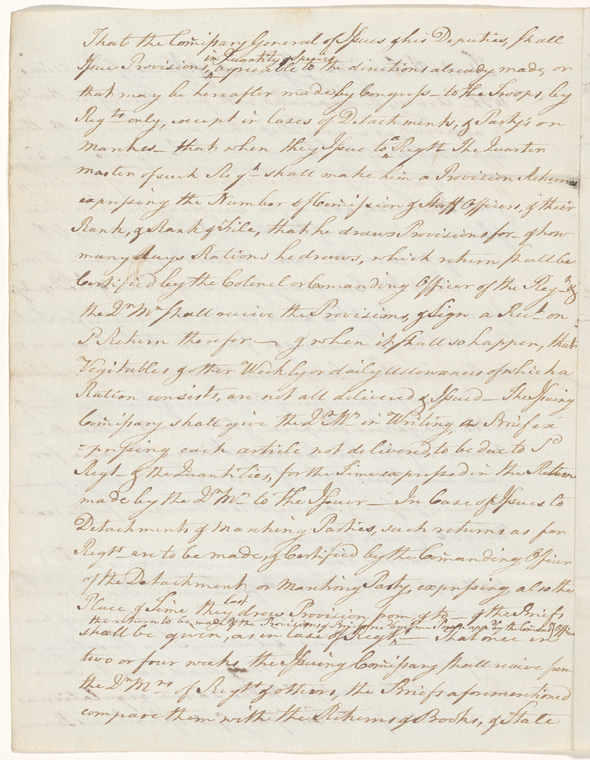 That the Comissary General of Issues & his Deputies, shall
in Quantity & Specie
Issue Provisions, agreeable to the directions already made, or
that may be hereafter made by Congress — to the Troops, by
Regts only, except in Cases of Detachments, & Party's on
Marches — that when they Issue to a Regt The Quarter
master of such Regt shall make him a Provision Return
expressing the Number of Comission & Staff Officers, & their
Rank, & Rank & File, that he draws Provisions for — & how
many days Rations he draws, which return shall be
Certified by the Colonel or Comanding Officer of the Regt &
the Qr Mr shall receive the Provisions, & Sign a Rect on
Sd Return therefor — & when it shall so happen, that
Vegitables & other Weekly or daily Allowances of which a
Ration consists, are not all delivered & Issued — The Issuing
Comissary shall give the Qr Mr in Writing a Brief ex
-pressing each article not delivered, to be due to Sd
Regt & the Quantities, for the Time expressed in the Return
made by the Qr Mr to the Issuer — In Case of Issues to
Detachments & Marching Parties, such returns as for
Regts are to be made, & Certified by the Comanding Officer
of the Detachment or Marching Party, expressing also the
last
Place & Time they drew Provision from &
the return to be made & the Provisions
shall be given, as in case of Regts — That once in
two or four weeks the Issuing Comissary shall receive from
the Qr Mrs of Regts & others, the Briefs aforementioned
compare them with the Returns & Books, & State